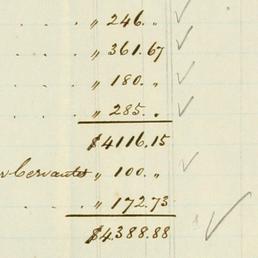 . . . " 246. "
. . . " 361.67
. . . " 180. "
. . . " 285. "
$4116.15
Cervantes " 100. "
. " 172.73
$4388.88